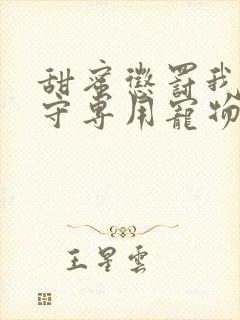 甜蜜懲罰我
守專用寵物
王星雲